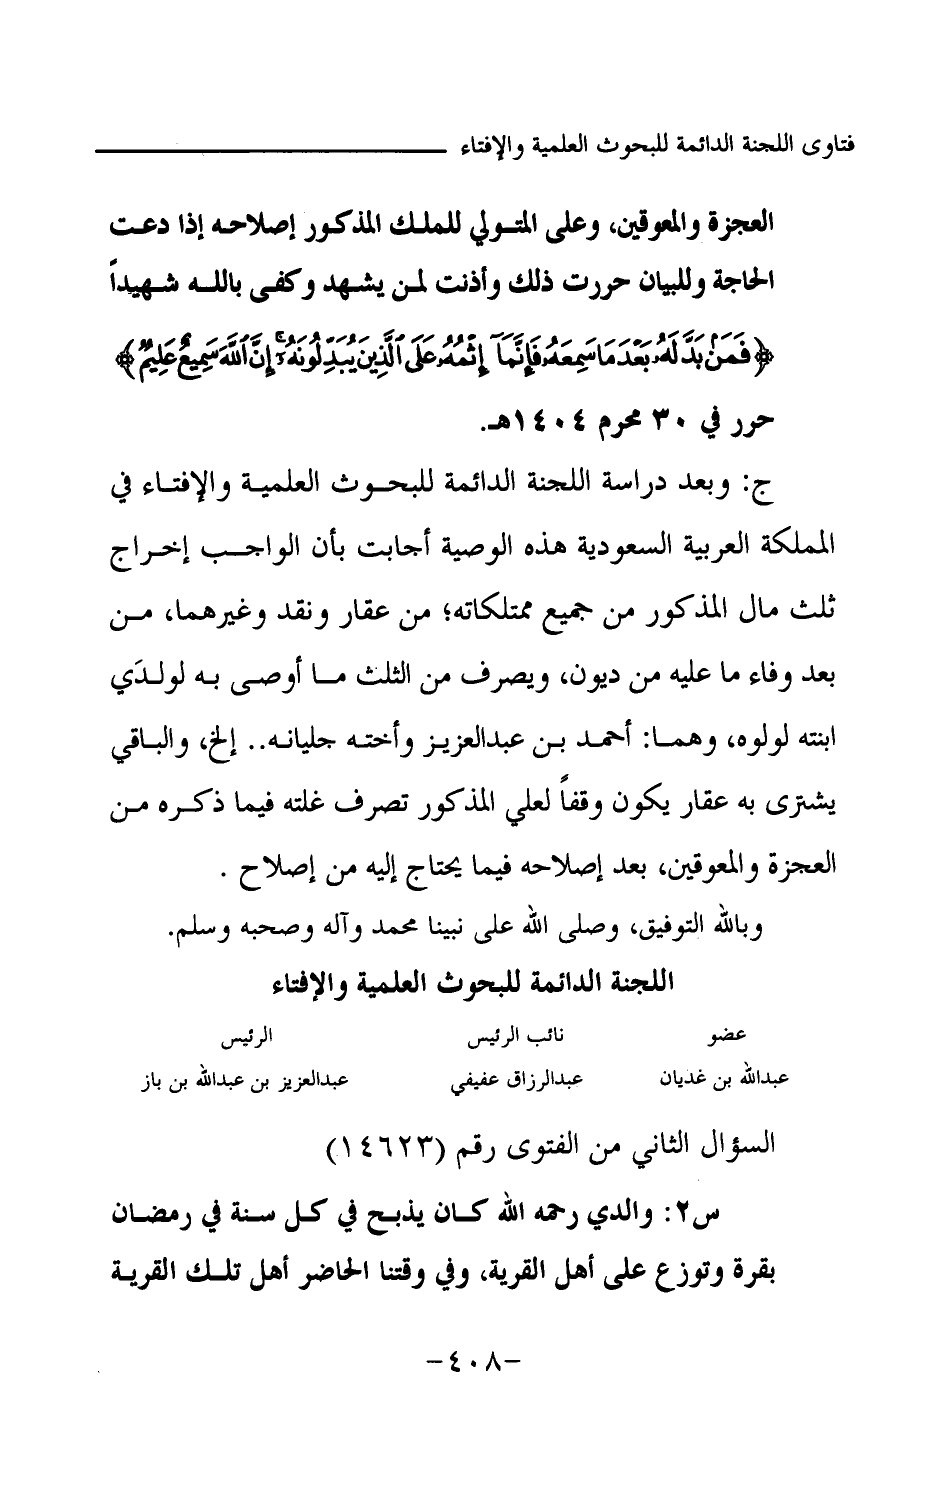 فتاوى اللجنة الدائمة للبحوث العلمية والإفتاء
العجزة والمعوقين، وعلى المتولي للملك المذكور إصلاحه إذا دعت
الحاجة وللبيان حررت ذلك وأذنت لمن يشهد وكفى بالله شهيداً
﴿فَمَنۢ بَدَّلَهُۥ بَعْدَمَا سَمِعَهُۥ فَإِنَّمَآ إِثْمُهُۥ عَلَى ٱلَّذِينَ يُبَدِّلُونَهُۥٓ إِنَّ ٱللَّهَ سَمِيعٌ عَلِيمٌ﴾
حرر في ٣٠ محرم ١٤٠٤هـ.
ج: وبعد دراسة اللجنة الدائمة للبحوث العلمية والإفتاء في
المملكة العربية السعودية هذه الوصية أجابت بأن الواجب إخراج
ثلث مال المذكور من جميع ممتلكاته؛ من عقار ونقد وغيرهما، من
بعد وفاء ما عليه من ديون، ويصرف من الثلث ما أوصى به لولدَي
ابنته لولوه، وهما: أحمد بن عبدالعزيز وأخته جليانه.. إلخ، والباقي
يشترى به عقار يكون وقفاً لعلي المذكور تصرف غلته فيما ذكره من
العجزة والمعوقين، بعد إصلاحه فيما يحتاج إليه من إصلاح .
وبالله التوفيق، وصلى الله على نبينا محمد وآله وصحبه وسلم.
اللجنة الدائمة للبحوث العلمية والإفتاء
عضو نائب الرئيس الرئيس
عبدالله بن غديان عبدالرزاق عفيفي عبدالعزيز بن عبدالله بن باز
السؤال الثاني من الفتوى رقم (١٤٦٢٣)
س٢: والدي رحمه الله كان يذبح في كل سنة في رمضان
بقرة وتوزع على أهل القرية، وفي وقتنا الحاضر أهل تلك القرية
-٤٠٨-